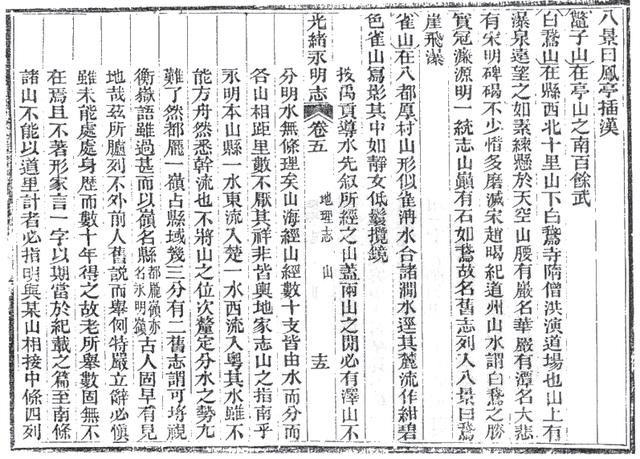 八景曰鳳亭插漢
甑子山在亭山之南百餘武
白鵞山在縣西北十里山下白鵞寺隋僧洪演道場也山上有
瀑泉遠望之如素練懸於天空山腰有嚴名華嚴有潭名大悲
有宋明碑碣不少惜多磨滅宋趙晹紀道州山水謂白鵞之勝
實冠濂源明一統志山巔有石如鵞故名舊志列入八景曰鵞
崖飛瀑
雀山在八都厚村山形似雀消水合諸澗水逕其麓流作紺碧
色雀山寫影其中如靜女低鬟攬鏡
光緒永明志 卷五 地理志 山 十五
按禹貢導水先叙所經之山蓋兩山之閒必有澤山不
分明水無條理矣山海經山經數十支皆由水而分而
各山相距里數不厭其祥非皆輿地家志山之指南乎
永明本山縣一水東流入楚一水西流入粵其水雖不
能方舟然悉幹流也不將山之位次釐定分水之勢九
難了然都龐一嶺占縣域幾三分有二舊志謂可埓視
衡嶽語雖過甚而以嶺名縣都龐嶺亦名永明嶺古人固早有見
地哉茲所臚列不外前人舊說而舉例特嚴立辭必愼
雖未能處處身歴而數十年得之故老所舉數固無不
在焉且不著形家言一字以期當於紀載之篇至南條
諸山不能以道里計者必指明與某山相接中條四列